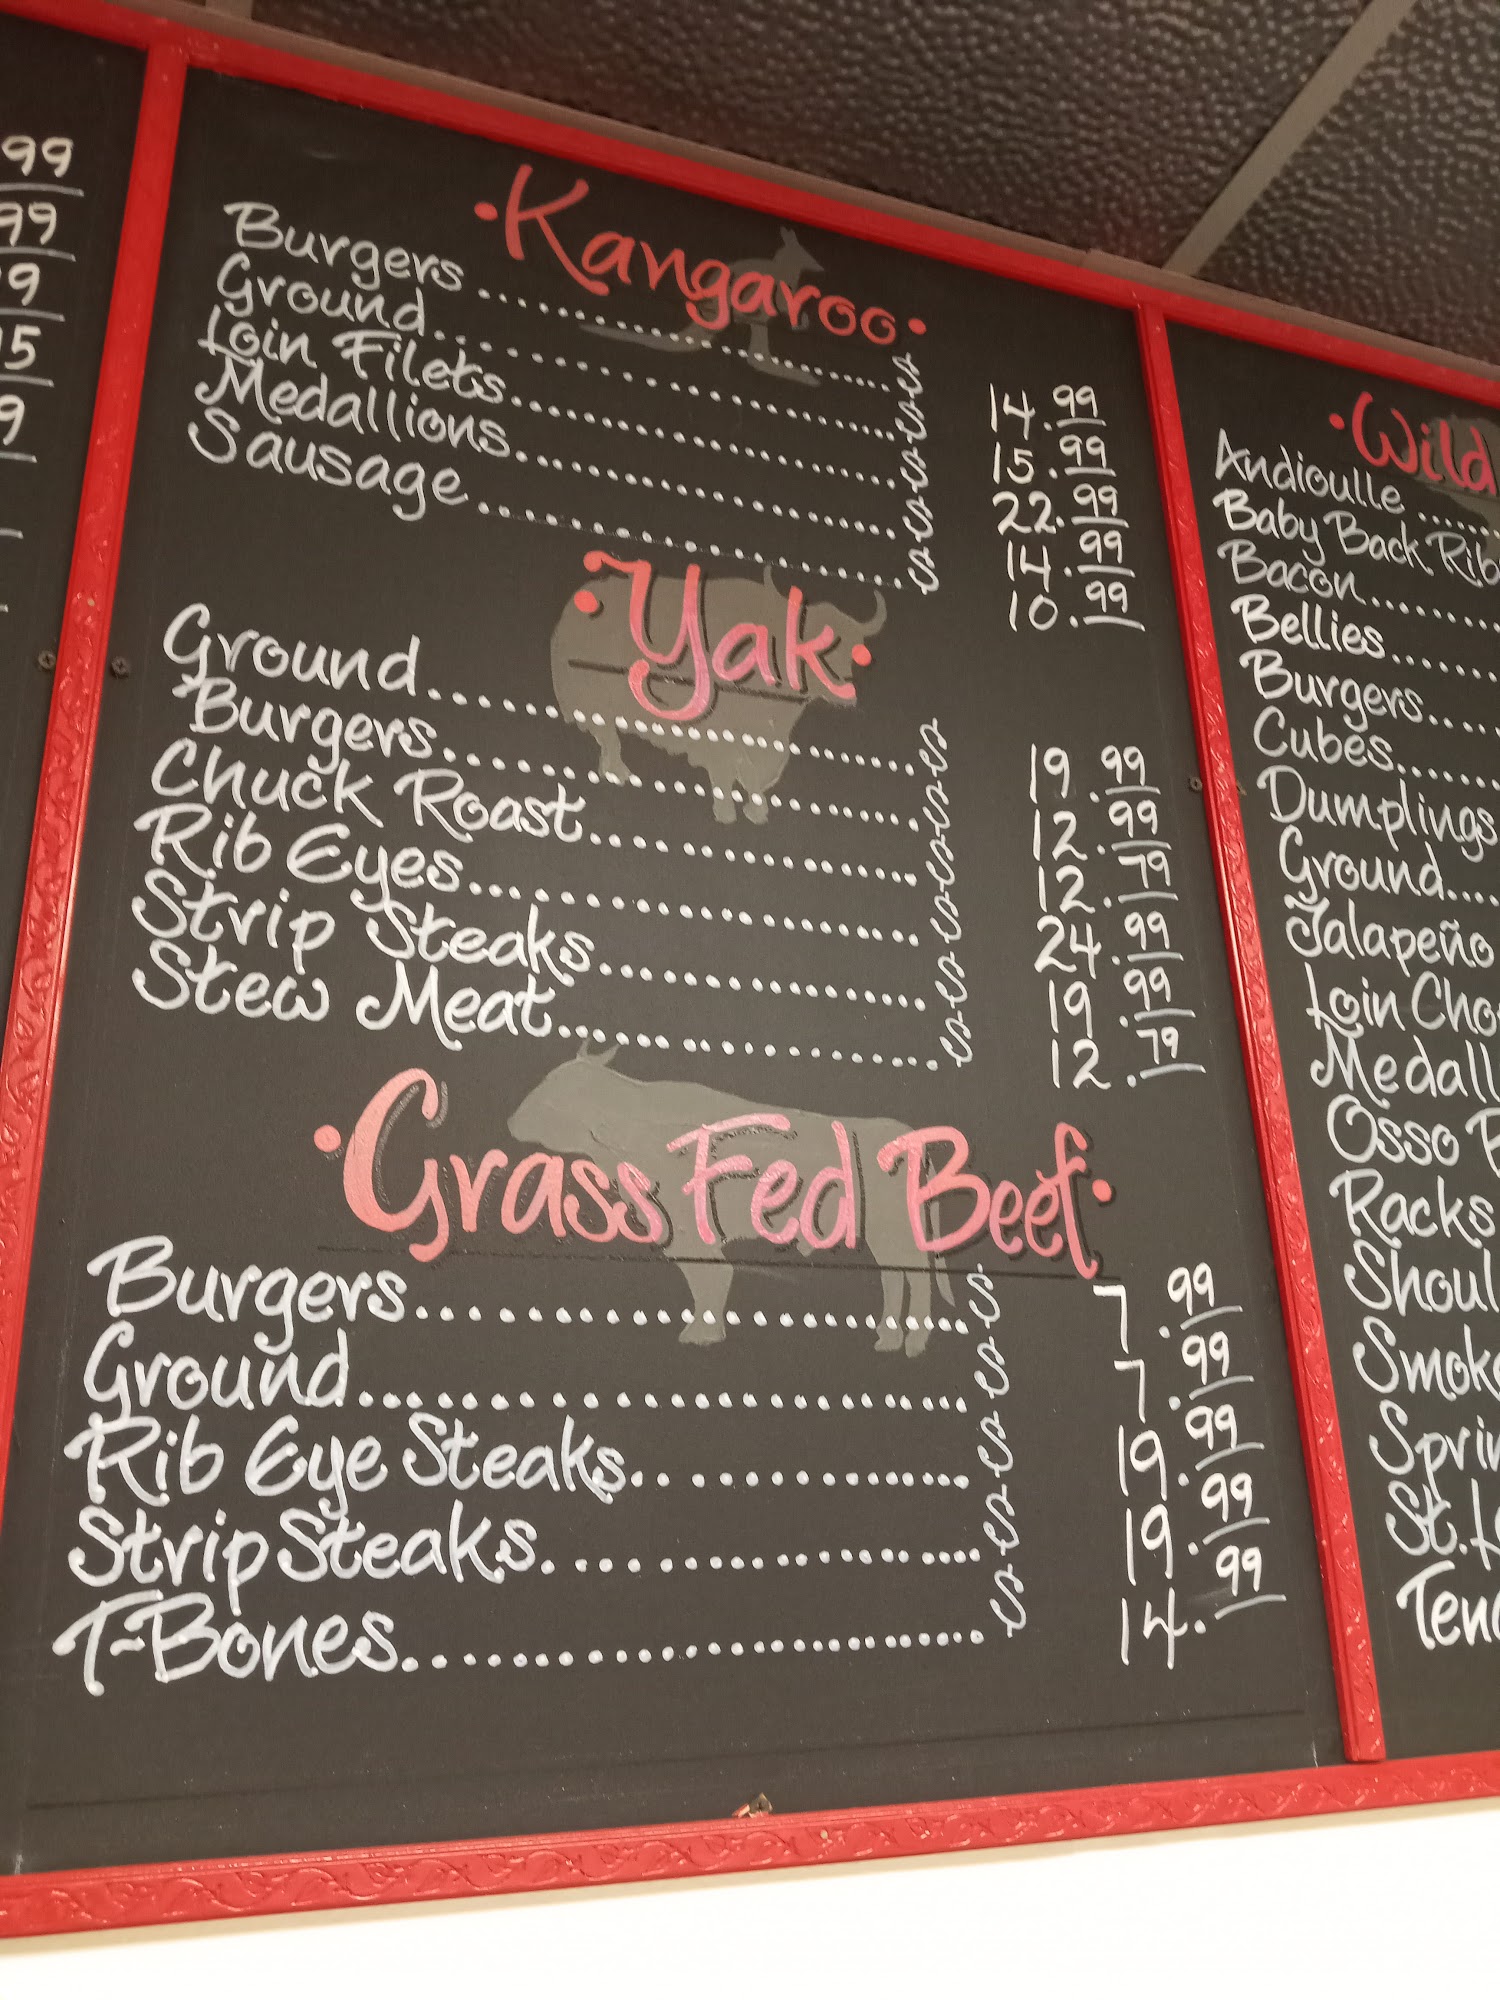 99
99
9
15
9
·Kangaroo·
Burgers 14.99
Ground 15.99
Loin Filets 22.99
Medallions 14.99
Sausage 10.99
·Yak·
Ground 19.99
Burgers 12.99
Chuck Roast 12.79
Rib Eyes 24.99
Strip Steaks 19.99
Stew Meat 12.79
·Grass Fed Beef·
Burgers 7.99
Ground 7.99
Rib Eye Steaks 19.99
Strip Steaks 19.99
T-Bones 14.99
·Wild
Andioulle
Baby Back Rib
Bacon
Bellies
Burgers
Cubes
Dumplings
Ground
Jalapeño
Loin Cho
Medall
Osso
Racks
Shoul
Smok
Sprin
St.
Ten